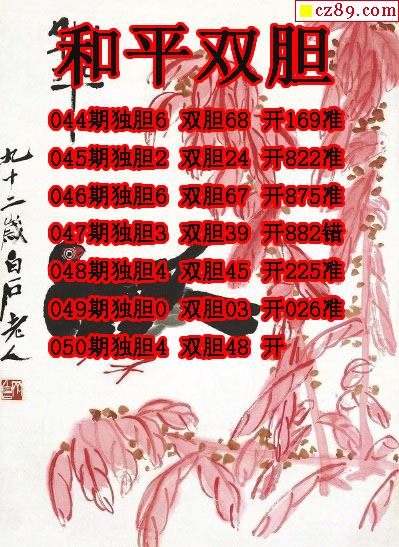 cz89.com
和平双胆
044期独胆6 双胆68 开169准
045期独胆2 双胆24 开822准
046期独胆6 双胆67 开875准
047期独胆3 双胆39 开882错
048期独胆4 双胆45 开225准
049期独胆0 双胆03 开026准
050期独胆4 双胆48 开
九十二岁白石老人